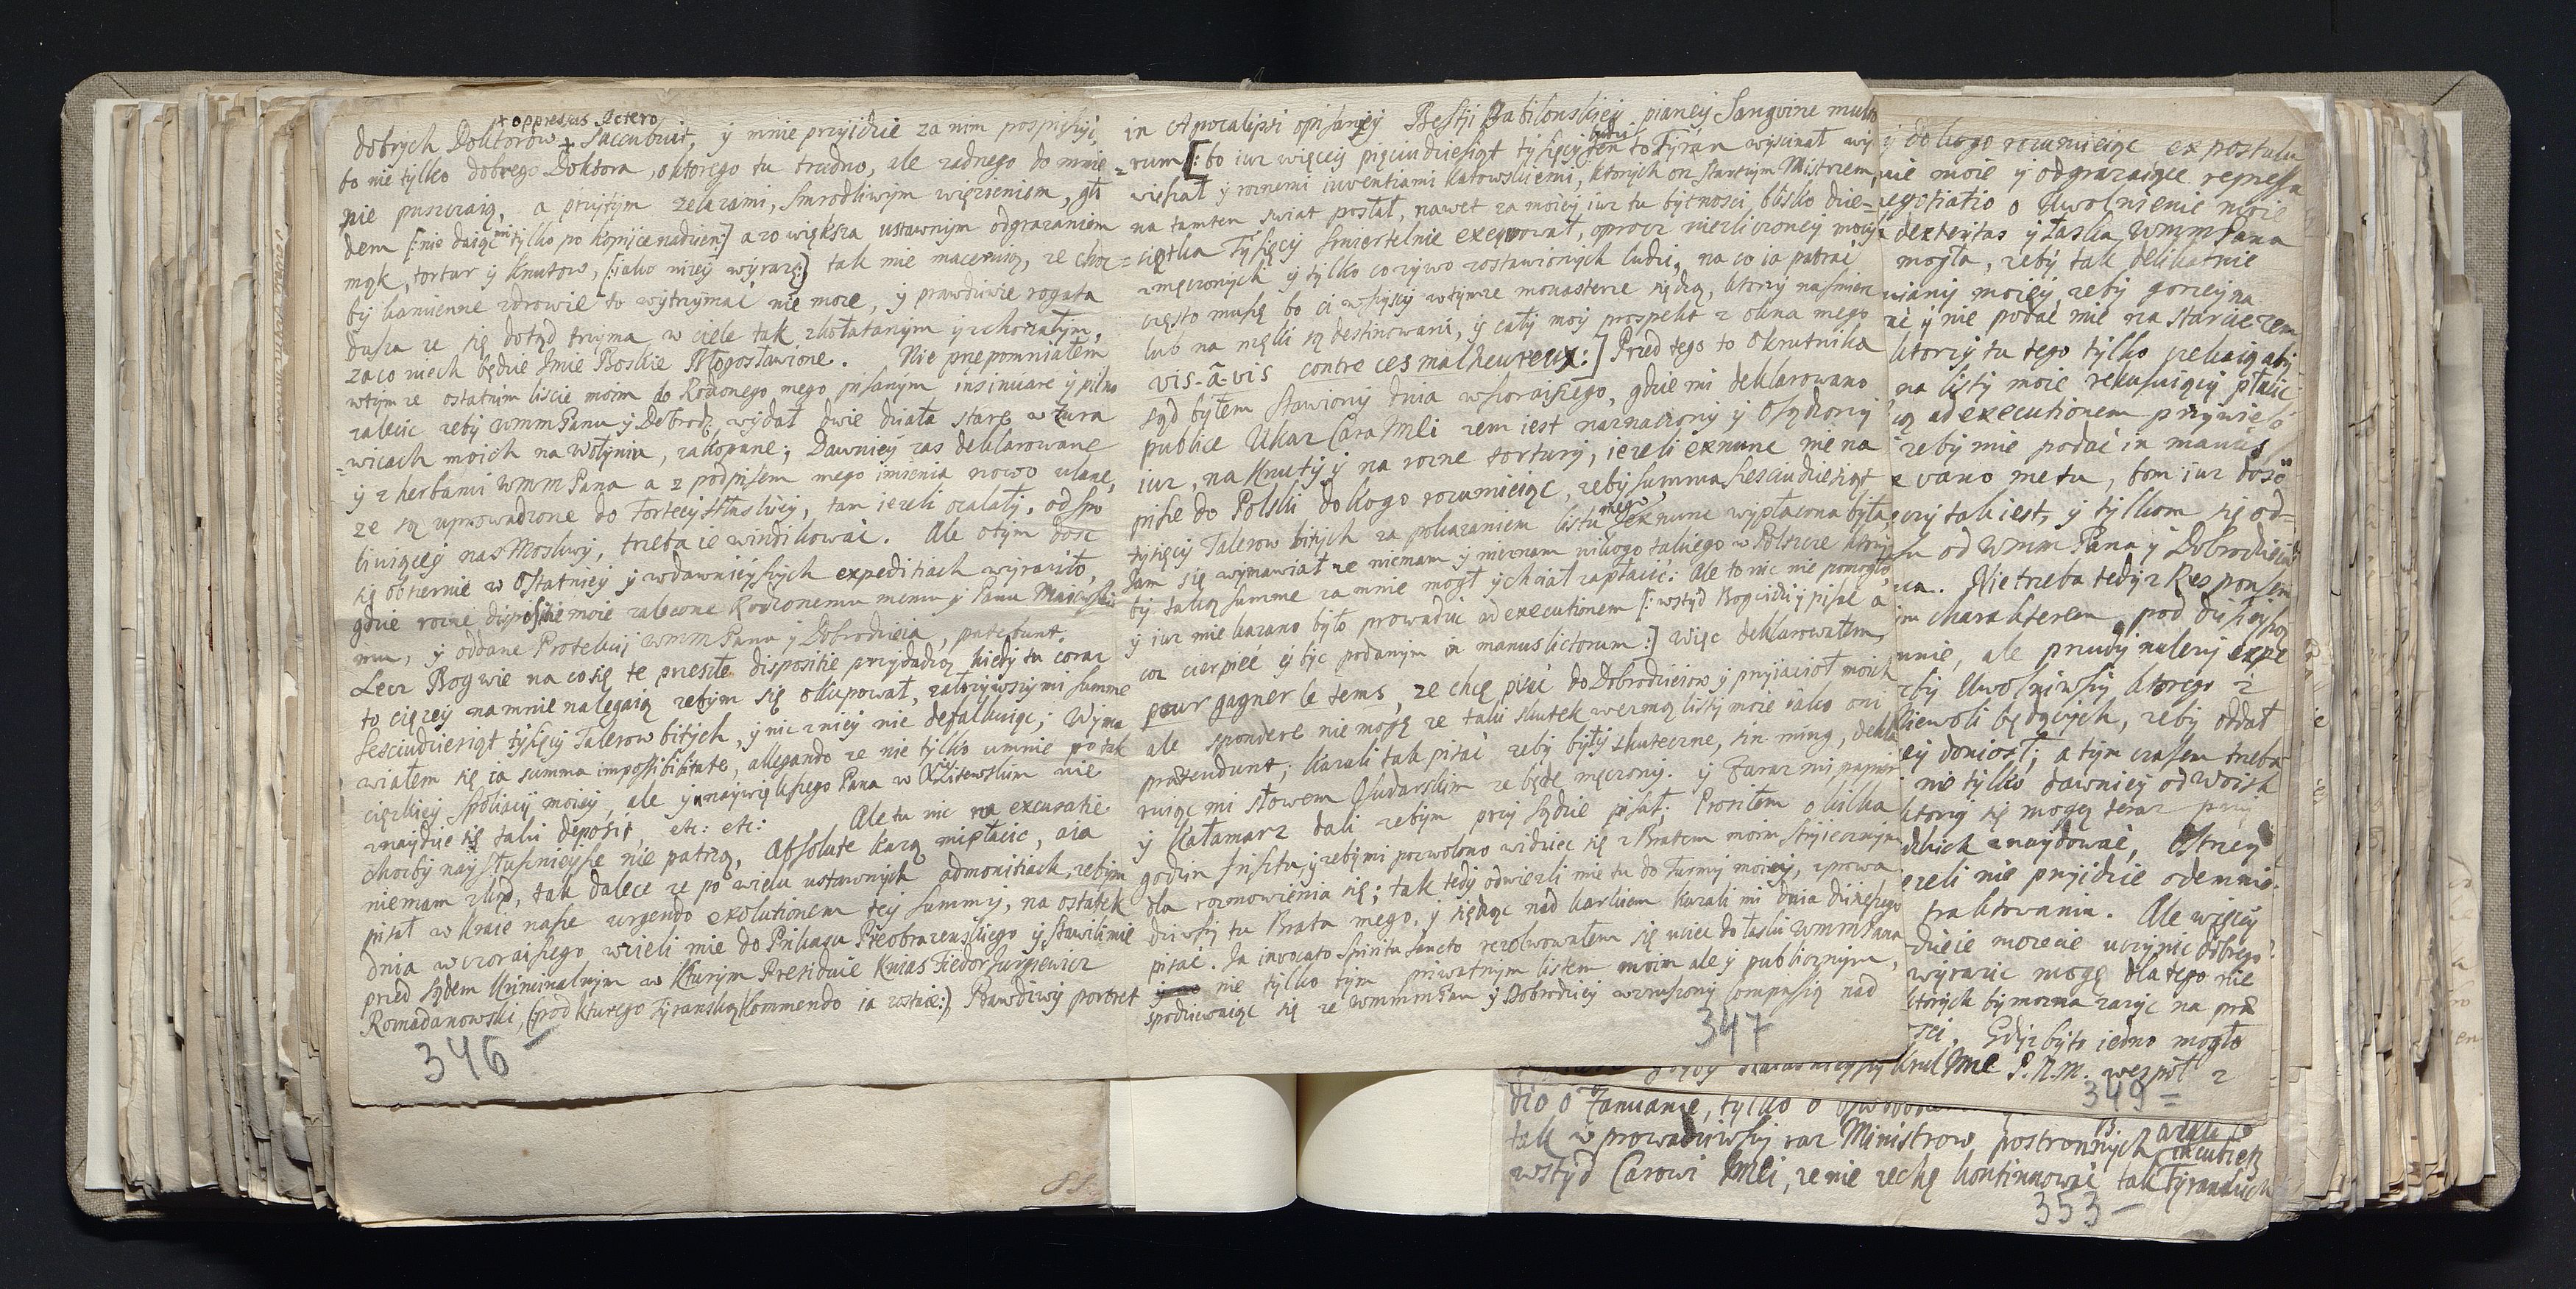 + oppressus Ictero
dobrych Doktorow + Succubuit, ÿ mnie przyidzie za nim pospieszyć,
bo nie tylko dobrego Doktora, o ktorego tu trudno, ale zadnego do mnie
nie puszczaią, a przytym zelazami, smrodliwym więzieniem, gło
dem [: nie daiąc mi tylko po kopijce nadzien :] a co większa ustawnym odgrazaniem
mąk, tortur ÿ knutow, [: iako nizeÿ wyrazę :] tak mie maceruią, ze choc=
by kamienne zdrowie to wytrzymać nie moze, ÿ prawdziwie rogata
dusza ze się dotąd trzyma w ciele tak skołatanym ÿ zchorzałym,
zaco niech będzie Imie Boskie Błogosławione. Nie przepomniałem
wtym ze ostatnim liscie moim do Rodzonego mego pisanym insinuare ÿ pilno
zalecic zeby WMM Panu ÿ Dobrodz: wydał dwie działa stare w Żura
=wicach moich na Wołyniu, zakopane; Dawnieÿ zas deklarowane
ÿ z herbami WMM Pana a z podpisem mego imienia nowo ulane,
ze są uprowadzone do Fortecy Słuskiey, tam iezeli ocalały, od Spo
liuiąceÿ nas Moskwÿ, trzeba ie windikować. Ale o tym dosc
się obszernie w Ostatnieÿ ÿ w dawnieyszych expeditiach wyraziło,
gdzie rozne dispositie moie zalecone Rodzonemu memu ÿ Panu
mu, ÿ oddane Protekcij WMM Pana ÿ Dobrodzieia, patebunt.
Lecz Bog wie na co się te przeszłe dispositie przydadzą kiedy tu coraz
to cięzeÿ na mnie nalegaią zebym się okupował, założywszy mi summe
sesciudziesiąt tysięcÿ Talerow bitych, ÿ nic z nieÿ nie defalkuiąc; Wyma
wiałem się ia summa impossibilitate, allegando ze nie tylko u mnie po tak
cięzkieÿ spoliacÿ moieÿ, ale ÿ u naywiększego Pana w X Litewskim nie
znaÿdzie się taki deposit, etc: etc: Ale tu nic na excusatie
chocby naÿ słusznieÿsze nie patrzą, Absolute kazą mi płacic, a ia
niemam zkąd, tak dalece ze po wielu ustawnych admonitiach, zebym
pisał w kraie nasze urgendo exolutionem teÿ summÿ, na ostatek
dnia wczoraiszego wzieli mie do Prikazu Preobrazenskiego ÿ stawili mie
przed sądem kriminalnym w kturym Prezÿduie Knias Fiedor Jurgiewicz
Romadanowski, (: pod kturego tyranską kommendo ia zostaie :) Prawdziwy portret
346 –
in Apocalipsi opisaneÿ Bestÿi Babilonskieÿ, pianeÿ Sangvine multo
=rum [: bo iuz więceÿ pięciudziesiąt tysięcÿ ludzi ten to Tyran wyscinał wÿ
wieszał ÿ roznemi inventiami katowskiemi, ktorych on starszym Mistrzem,
na tamten swiat posłał, nawet za moieÿ iuz tu bytnosci, blisko dzie=
siątka Tysięcÿ smiertelnie exequował, oprocz niezliczoneÿ mocÿ
zmęczonych ÿ tylko co zÿwo zostawionych ludzi, na co ia patrzać
często muszę bo ci wszyscÿ w tymze monasterze siędzą, ktorzÿ na smierc
lub na męki są destinowani, ÿ całÿ moÿ prospekt z okna mego
vis-à-vis contre ces malheureux :] Przed tego to Okrutnika
sąd byłem stawionÿ dnia wczoraiszego, gdzie mi deklarowano
publice Ukaz Cara JMci zem iest naznaczonÿ ÿ osądzonÿ
iuz, na knutÿ ÿ na rozne torturÿ, iezeli ex nunc nie na
piszę do Polski do kogo rozumieiąc, zeby summa sesciudziesiąt
tysięcÿ Talerow bitych za pokazaniem listu mego ex nunc wypłacona była,
Jam się wymawiał ze niemam ÿ nieznam nikogo takiego w Polszcze ktory
by taką summe za mnie mogł ÿ chciał zapłacic: Ale to nic nie pomogło,
ÿ iuz mie kazano było prowadzic ad executionem [: wstyd Bog widzi ÿ pisać a
coz cierpieć ÿ byc podanym in manus lictorum :] więc deklarowałem
pour gagner le tems, ze chcę pisać do Dobrodzieiow ÿ przyiacioł moich
ale spondere nie mogę ze taki skutek wezmą listÿ moie iako oni
prætendunt; kazali tak pisać zeby byłÿ skuteczne, sin minq, dekla
ruiąc mi słowem Hudarskim ze będę męczonÿ. ÿ Zaraz mi papier
ÿ Kałamarz dali zebym przy sądzie pisał; Prosiłem o kilka
godzin frisztu, ÿ zeby mi pozwolono widziec się z Bratem moim stryiecznym
dla rozmowienia się; tak tedy odwiezli mie tu do turmÿ moieÿ, zprowa
dziwszÿ tu Brata mego, ÿ siędząc nad karkiem kazali mi dnia dzisieÿszego
pisać. Ia invocato Spiritu Sancto rezolwowałem się uciec do łaski WMM Pana
nie tylko tym priwatnym listem moim ale ÿ publicznym,
spodziewaiąc się ze WMMM Pan ÿ Dobrodzieÿ wzruszonÿ compassią nad
347
ÿ do kogo rozumieiąc expostulu
nie moie ÿ odgrazaiące represa
negotiatio o Uwolnienie moie
dexteritas ÿ łaska WMM Pana
mogła, zeby tak delikatnie
moieÿ, zeby gorzeÿ na
ać ÿ nie podać mie na starcie zem
ktorzÿ tu tego tylko czekaią aby
na listÿ moie rekusuiącÿ płacic
ą ad executionem przywieść
zeby mie podać in manus
vano metu, bom iuz dosc
tak iest, ÿ tylkom się od=
od WMM Pana ÿ Dobrodzieia
Nie trzeba tedy z Responsem
charakterem, pod dużą
mnie, ale prędzÿ nalezÿ expe
by Uwolniwszÿ ktorego z
Niewoli będących, zeby oddał
eÿ doniosł; a tym czasem trzeba
nie tylko dawnieÿ od woisk
ktorzÿ się mogą teraz przÿ
znaydować, Ostrzeg
iezeli nie przyidzie odemnie
traktowaniu. Ale więceÿ
dzieie mozecie uczynic dobrego?
wyrazic mogę dla tego nie
ktorych by mozna zazyc na prze
Gdyz by to iedno mogło
Krul JMc P.N.M. wespoł z
349 =
dio o Zamianie, tylko o
tak w prowadziwszÿ raz Ministrow postronnych
wstyd Carowi JMci, ze nie zechę kontinuować tak Tyranskich
353 –